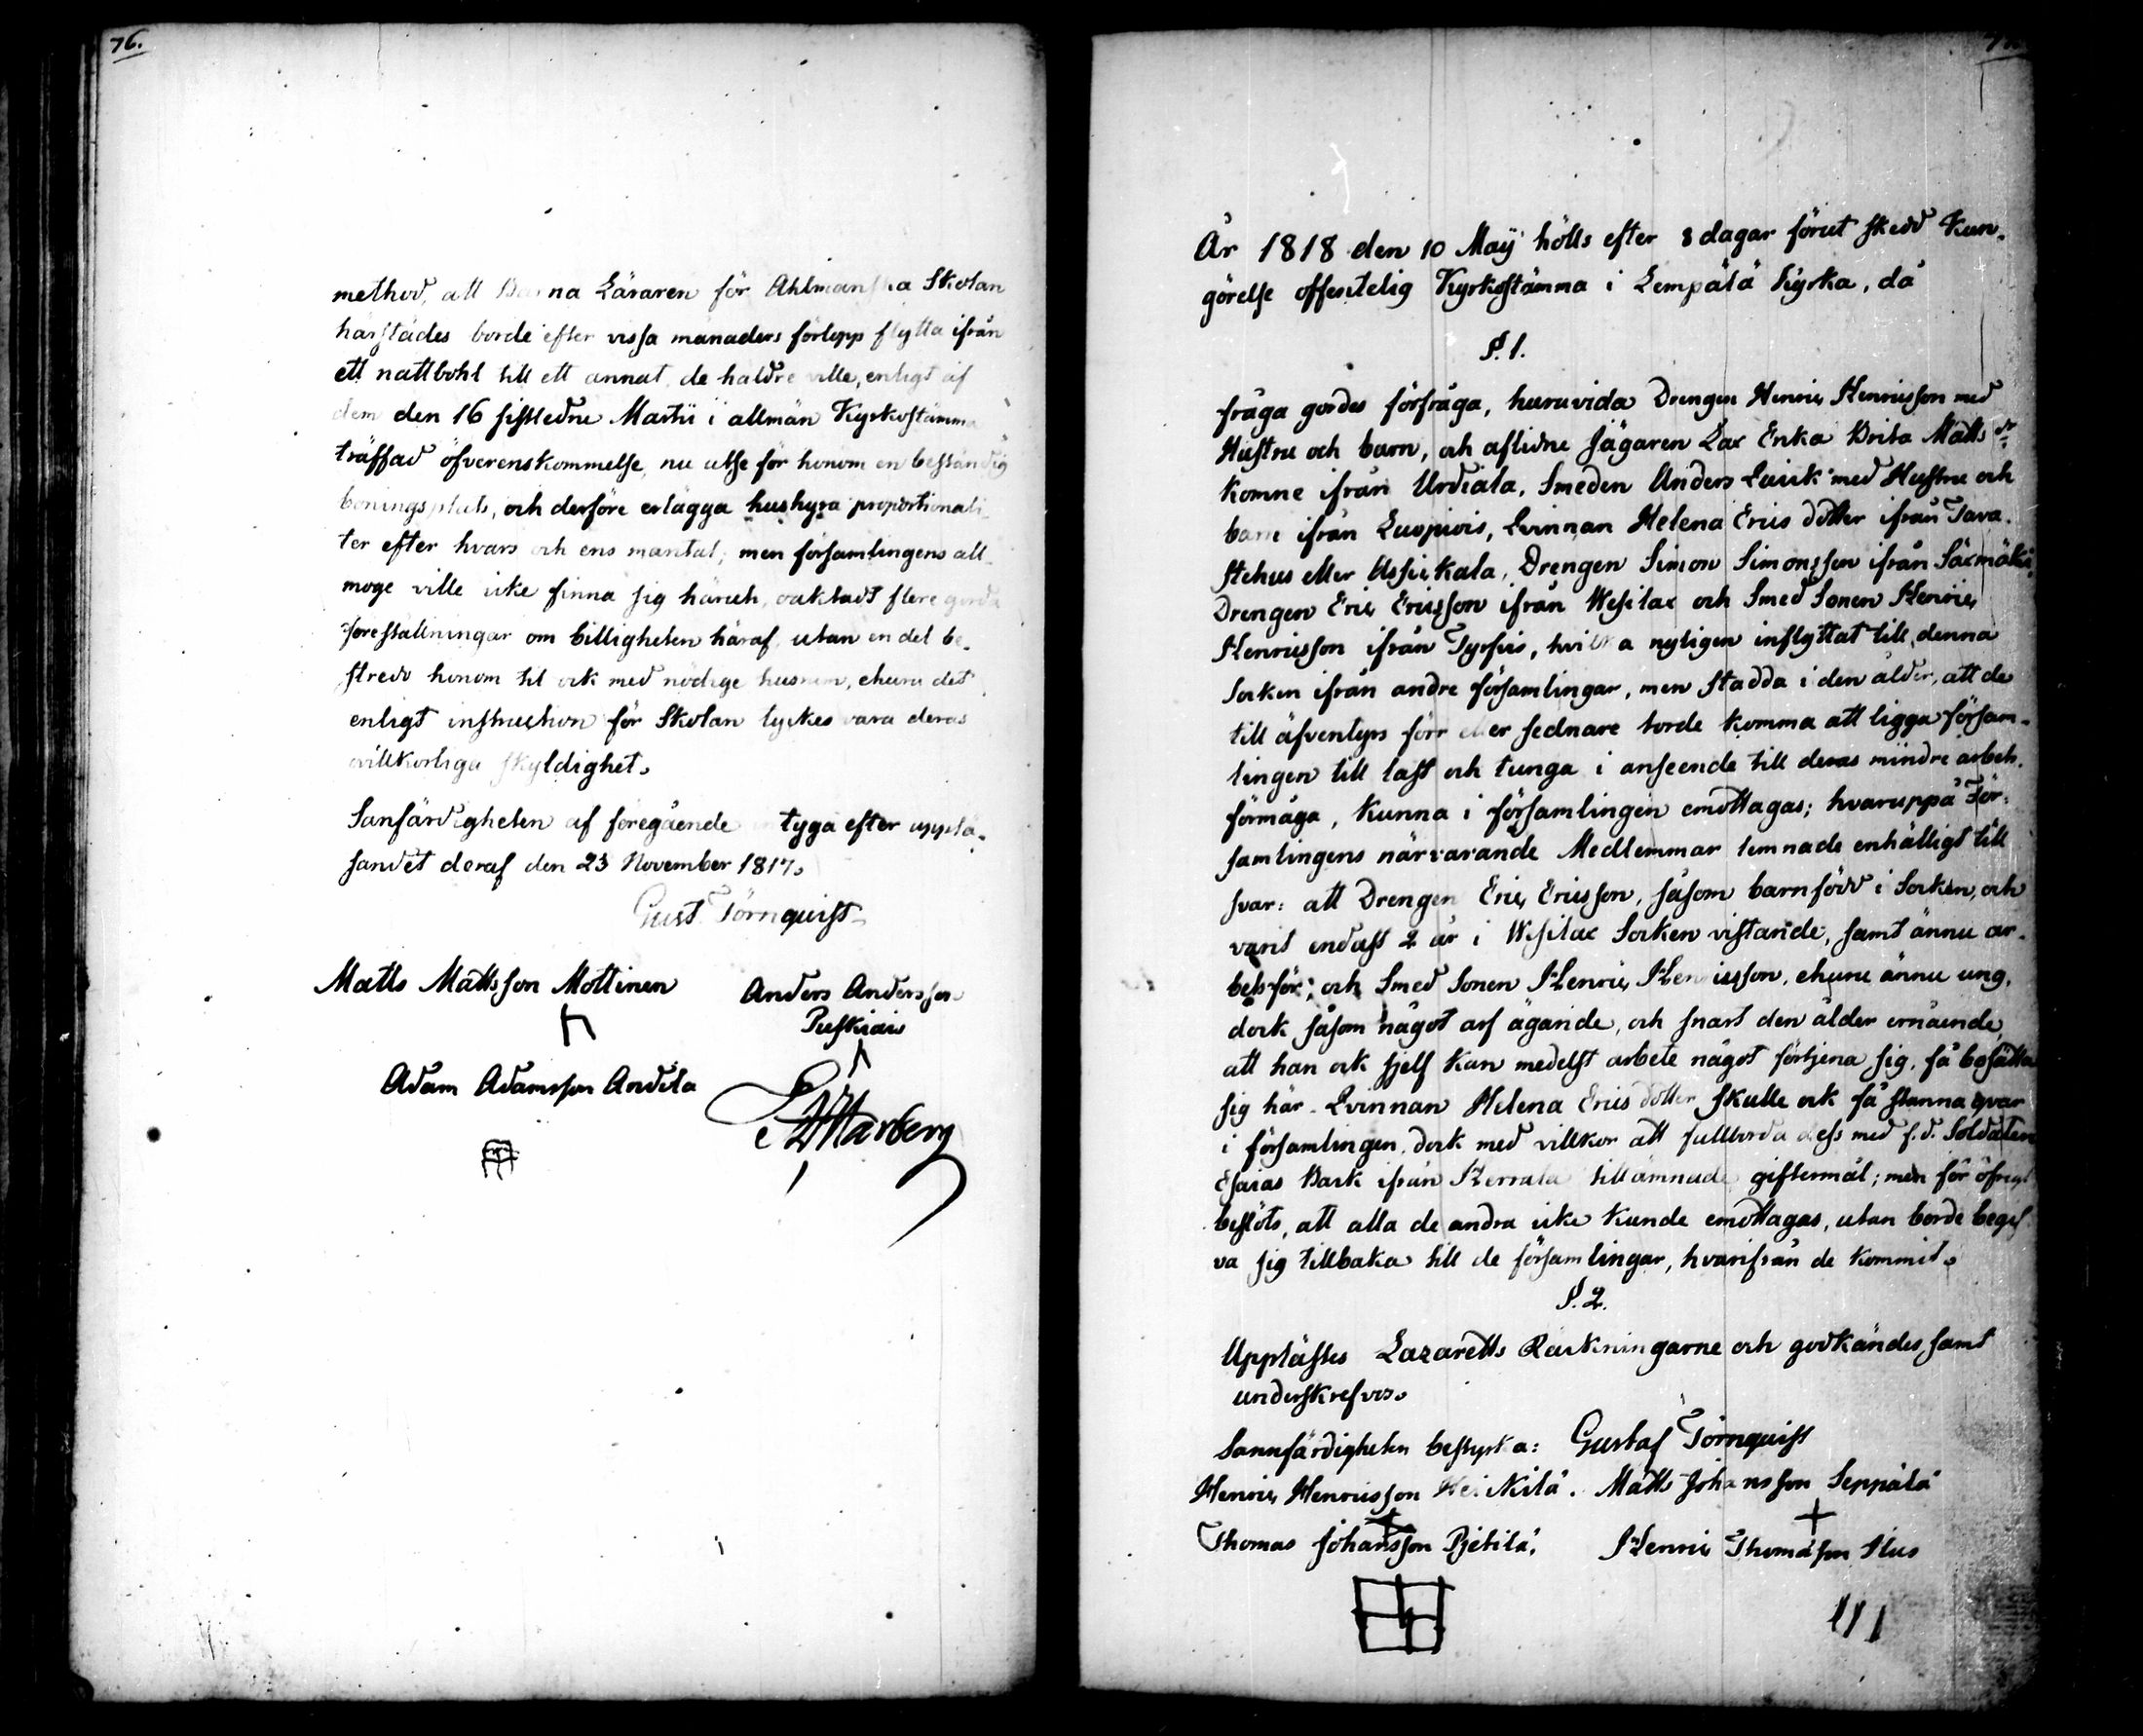 76.
method, att Barna Läraren för Ahlmanska Skolan
härstädes borde efter vissa månaders förlopp flytta ifrån
ett nattbohl till ett annat, de haldre ville, enligt af
dem den 16 sistledne Martii i allmän Kyrkostämma
träffad öfverenskommelse, nu utse för honom en beständig
boningsplats, och derföre erlägga hushyra proportionali-
ter efter hvars och ens mantal; men församlingens all-
moge ville icke finna sig häruti, oaktadt flere gorda
föreställningar om billigheten häraf, utan en del be-
stredo honom til ock med nödige husrum, ehuru det
enligt instruction för Skolan tyckes vara deras
ovillkorliga skyldighet.
Sanfärdigheten af föregående intyga efter upplä-
sandet deraf den 23 November 1817.
Gust. Törnquist
Matts Mattsson Mottinen
Anders Andersson
Puskiais
Adam Adamsson Andila
Marberg
År 1818 den 10 Maÿ hölls efter 8 dagar förut skedd Kun-
görelse offentelig Kyrkostämma i Lempälä Kyrka, då
§. 1.
fråga gordes förfråga, huruvida Drengen Henric Henricsson med
Hustru och barn, och aflidne Jägaren Lax Enka Brita Matts dr
komne ifrån Urdiala, Smeden Anders Lauk med Hustru och
barn ifrån Luopiois, Qvinnan Helena Erics dotter ifrån Tava-
stehus eller Assikala, Drengen Simon Simonsson ifrån Säxmäki,
Drengen Eric Ericsson ifrån Wesilax och Smed Sonen Henric
Henricsson ifrån Tyrfvis, hvilka nyligen inflyttat till denna
Socken ifrån andre församlingar, men stadda i den ålder, att de
till äfventyrs förr eller sednare torde komma att ligga försam-
lingen till last och tunga i anseende till deras mindre arbets-
förmåga, kunna i församlingen emottagas; hvaruppå För-
samlingens närvarande Medlemmar lemnade enhälligt till
svar: att Drengen Eric Ericsson, såsom barnfödd i Socken, och
varit endast 2 år i Wesilax Socken vistande, samt ännu ar-
betsför; och Smed Sonen Henric Henricsson, ehuru ännu ung,
dock såsom något arf ägande, och snart den ålder ernående
att han ock sjelf kan medelst arbete något förtjena sig, få bosätta
sig här. Qvinnan Helena Erics dotter skulle ock få stanna qvar
i församlingen, dock med villkor att fullborda dess med f.d. Soldaten
Esaias Bark ifrån Herrala tillämnade giftermål; men för öfrigt
beslöts, att alla de andra icke kunde emottagas, utan borde begif-
va sig tillbaka till de församlingar, hvarifrån de kommit.
§. 2.
Upplästes Lazaretts Räkningarne och godkändes, samt
underskrefvos.
Sannfärdigheten bestyrka: Gustaf Törnquist
Henric Henricsson Heikkilä. Matts Johansson Seppälä
Thomas Johansson Pjetilä. Henric Thomasson